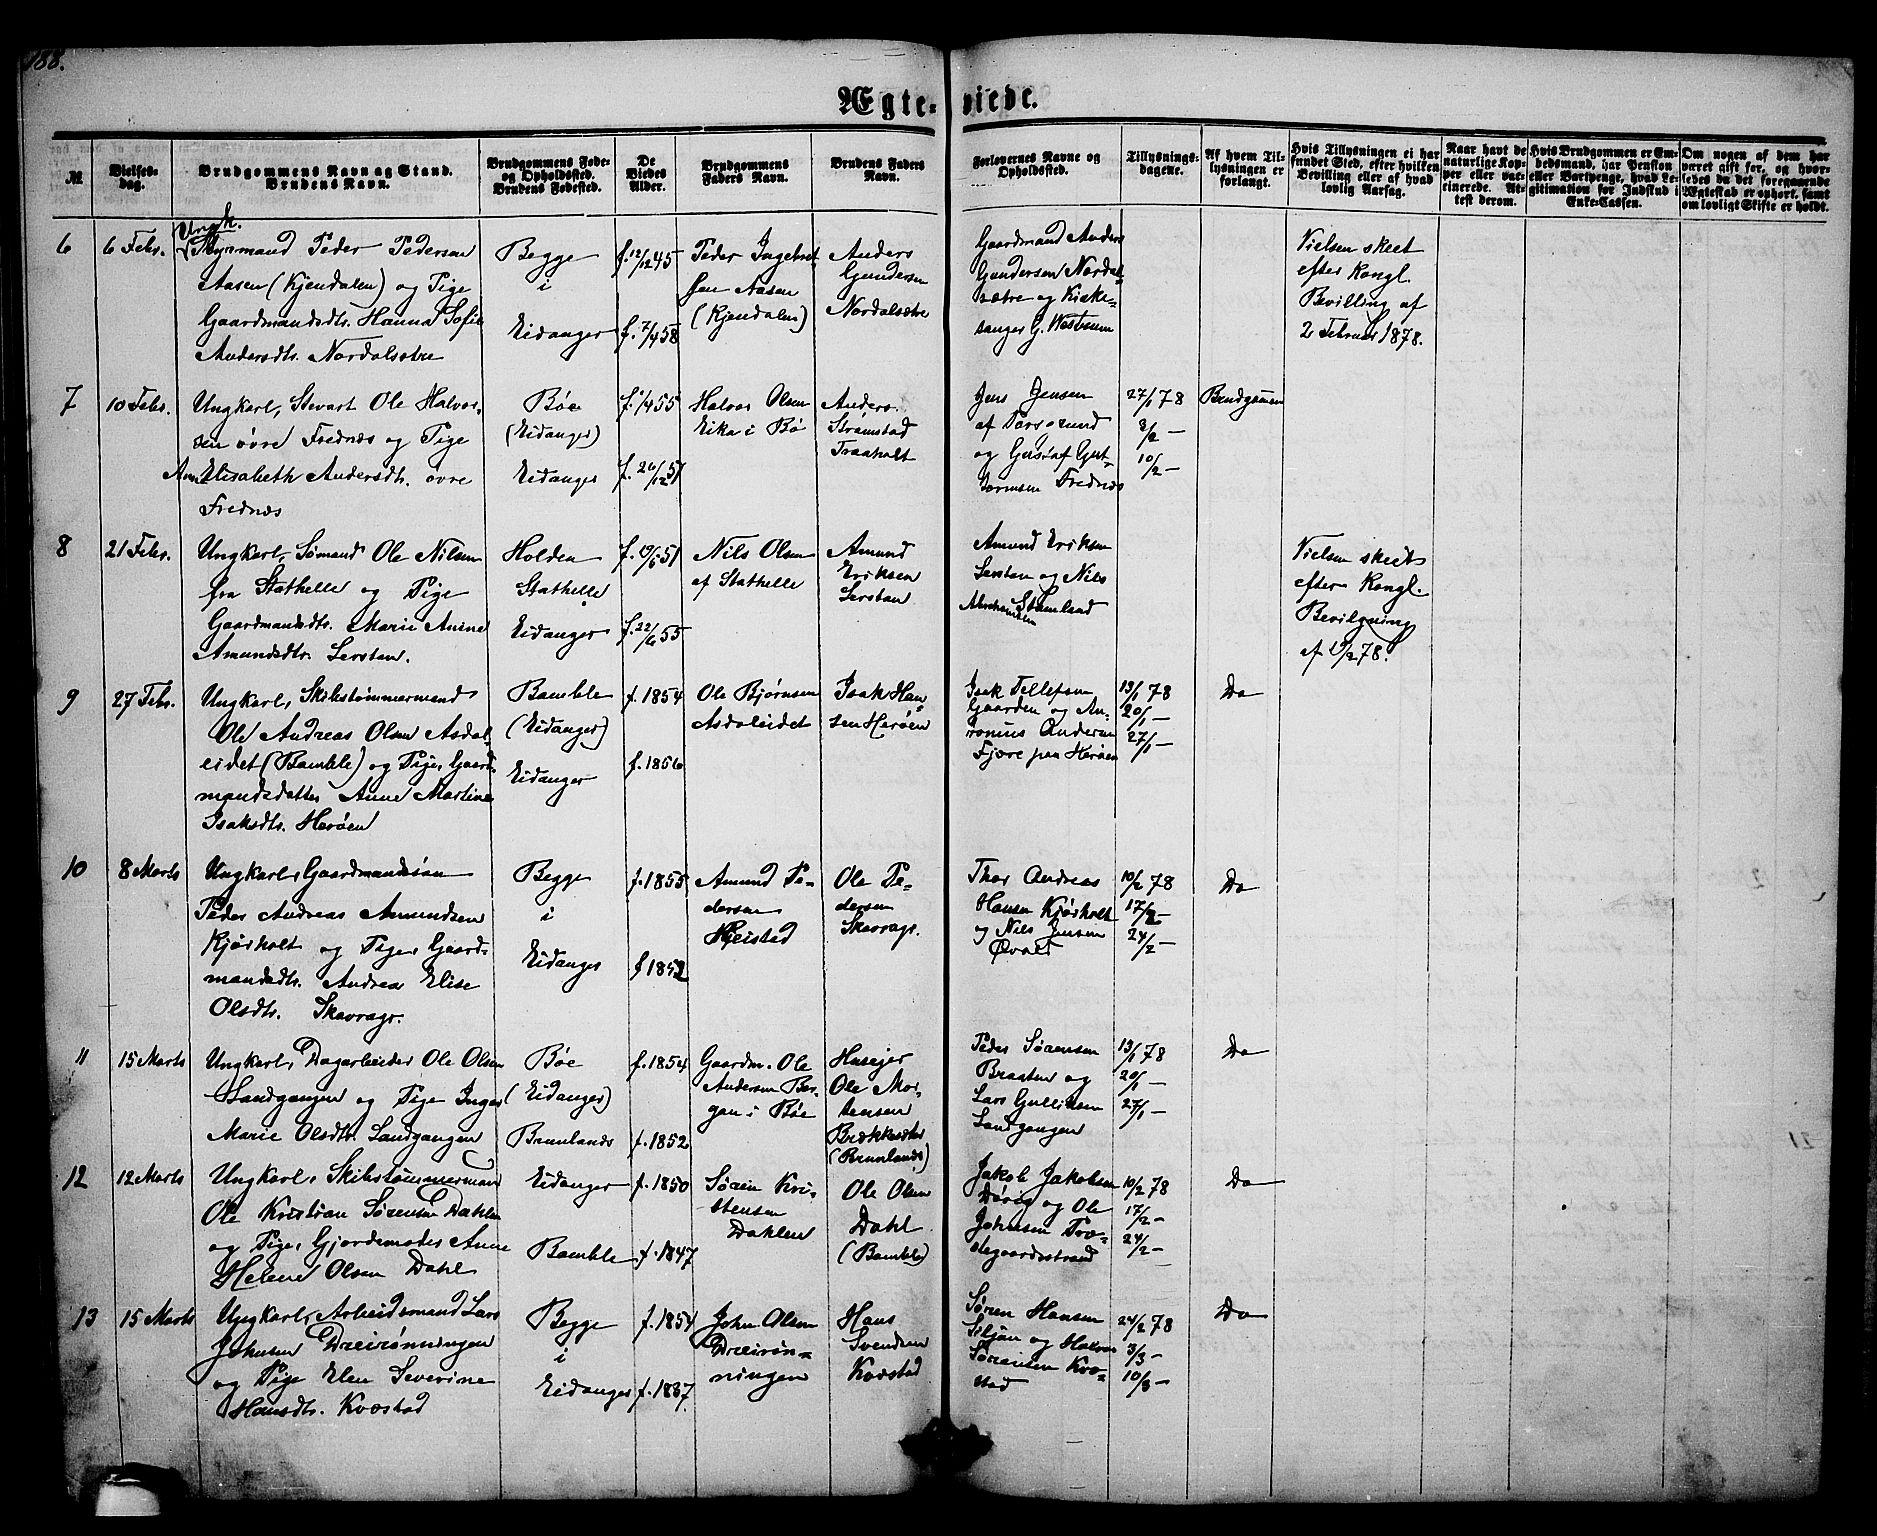 188.
Ægte-viede.
№
Vielses-
dag.
Brudgommens Navn og Stand.
Brudens Navn.
Brudgommens Føde-
og Opholdssted.
Brudens Fødested.
De
Viedes
Alder.
Brudgommens
Faders Navn.
Brudens Faders
Navn.
Forlovernes Navne og
Opholdssted.
Tillysnings-
dagene.
Af hvem Til-
lysningen er
forlangt.
Hvis Tillysningen ei har
fundet Sted, efter hvilken
Bevilling eller af hvad
lovlig Aarsag.
Naar havt de
naturlige Kop-
per eller vac-
cinerede. At-
test derom.
Hvis Brudgommen er Em-
bedsmand, har Pension
eller Vartpenge, hvad Le-
gitimation for Indskud i
Enke-Cassen.
Om nogen af dem har
været gift før, og hvor-
ledes da det foregaaende
Ægteskab er ophørt, samt
om lovligt Skifte er holdt.
6
6 Febr.
Ungk.
Styrmand Peder Pedersen
Aasen (Kjendalen) og Pige
Gaardmandsdtr. Hanna Sofie
Andersdtr. Nordalsætre
Begge
i
Eidanger
f. 12/12 45
f. 7/4 58
Peder Ingebret
sen Aasen
(Kjendalen)
Anders
Gundersen
Nordalsætre
Gaardmand Anders
Gundersen Nordal-
sætre og Kirke-
sanger G. Westrum
Vielsen skeet
efter Kongl.
Bevilling af
2 Februar 1878.
7
10 Febr.
Ungkarl, Stevart Ole Halvor-
sen øvre Frednæs og Pige
Anne Elisabeth Andersdtr. øvre
Frednæs
Bøe
(Eidanger)
Eidanger
f. 1/4 55
f. 26/12 51
Halvor Olsen
Eika i Bø
Anders
Strømstad
Traaholt
Jens Jensen
af Porsgrund
og Gust af Gut-
tormsen Frednæs
27/1 78
3/2 —
10/2 —
Brudgommen
8
21 Febr.
Ungkarl, Sømand Ole Nilsen
fra Stathelle og Pige
Gaardmandsdtr. Marie Anine
Amundsdtr. Lersten.
Holden
Stathelle
Eidanger
f. 19/6 51
f. 22/6 55
Nils Olsen
af Stathelle
Amund
Eriksen
Lersten
Amund Eriksen
Lersten og Nils
Abrahamsen Stamland
Vielsen skeet
efter Kongl.
Bevilgning
af 19/2 78.
9
27 Febr.
Ungkarl, Skibstømmermand
Ole Andreas Olsen Asdal-
eidet (Bamble) og Pige, Gaard-
mandsdatter Anne Martine
Isaksdtr. Herøen
Bamble
(Eidanger)
Eidanger
f. 1854
f. 1856
Ole Bjørnsen
Asdaleidet
Isak Han-
sen Herøen
Isak Tellefsen
Gaarden og An-
tonius Andersen
Fjøre paa Herøen
13/1 78
20/1 —
27/1 —
Do
10
8 Marts
Ungkarl, Gaardmandssøn
Peder Andreas Amundsen
Kjørholt og Pige, Gaard-
mandsdtr. Andrea Elise
Olsdtr. Skavrager.
Begge
i
Eidanger
f. 1855
f. 1852
Amund Pe-
dersen
Heistad
Ole Pe-
dersen
Skavrager.
Thor Andreas
Hansen Kjørholt
og Nils Jensen
Øvald
10/2 78
17/2 —
24/2 —
Do
11
15 Marts
Ungkarl, Dagarbeider Ole Olsen
Landgangen og Pige Inger
Marie Olsdtr. Landgangen
Bøe
(Eidanger)
Brunlanæs
f. 1854
f. 1852
Gaardm. Ole
Andersen Ber-
gan i Bøe
Huseier
Ole Mor-
tensen
Brækkesæter
(Brunlanæs)
Peder Sørensen
Braaten og
Lars Gulliksen
Landgangen
13/1 78
20/1 —
27/1 —
Do
12
12 Marts
Ungkarl, Skibstømmermand
Ole Kristian Sørensen Dahlen
og Pige, Gjordemoder Anne
Helene Olsen Dahl
Eidanger
Bamble
f. 1850
f. 1847
Søren Kri-
stensen
Dahlen
Ole Olsen
Dahl
(Bamble)
Jakob Jakobsen
Dørje og Ole
Johnsen Præ-
stegaardsstrand
10/2 78
17/2 —
24/2 —
Do
13
15 Marts
Ungkarl, Arbeidsmand Lars
Johnsen Dreirønningen
og Pige Elen Severine
Hansdtr. Kvæstad
Begge
i
Eidanger
f. 1854
f. 1837.
John Olsen
Dreirøn-
ningen
Hans
Svendsen
Kvæstad
Søren Hansen
Siljan og Halvor
Sørensen Kvæ-
stad
24/2 78
3/3 —
10/3 —
Do